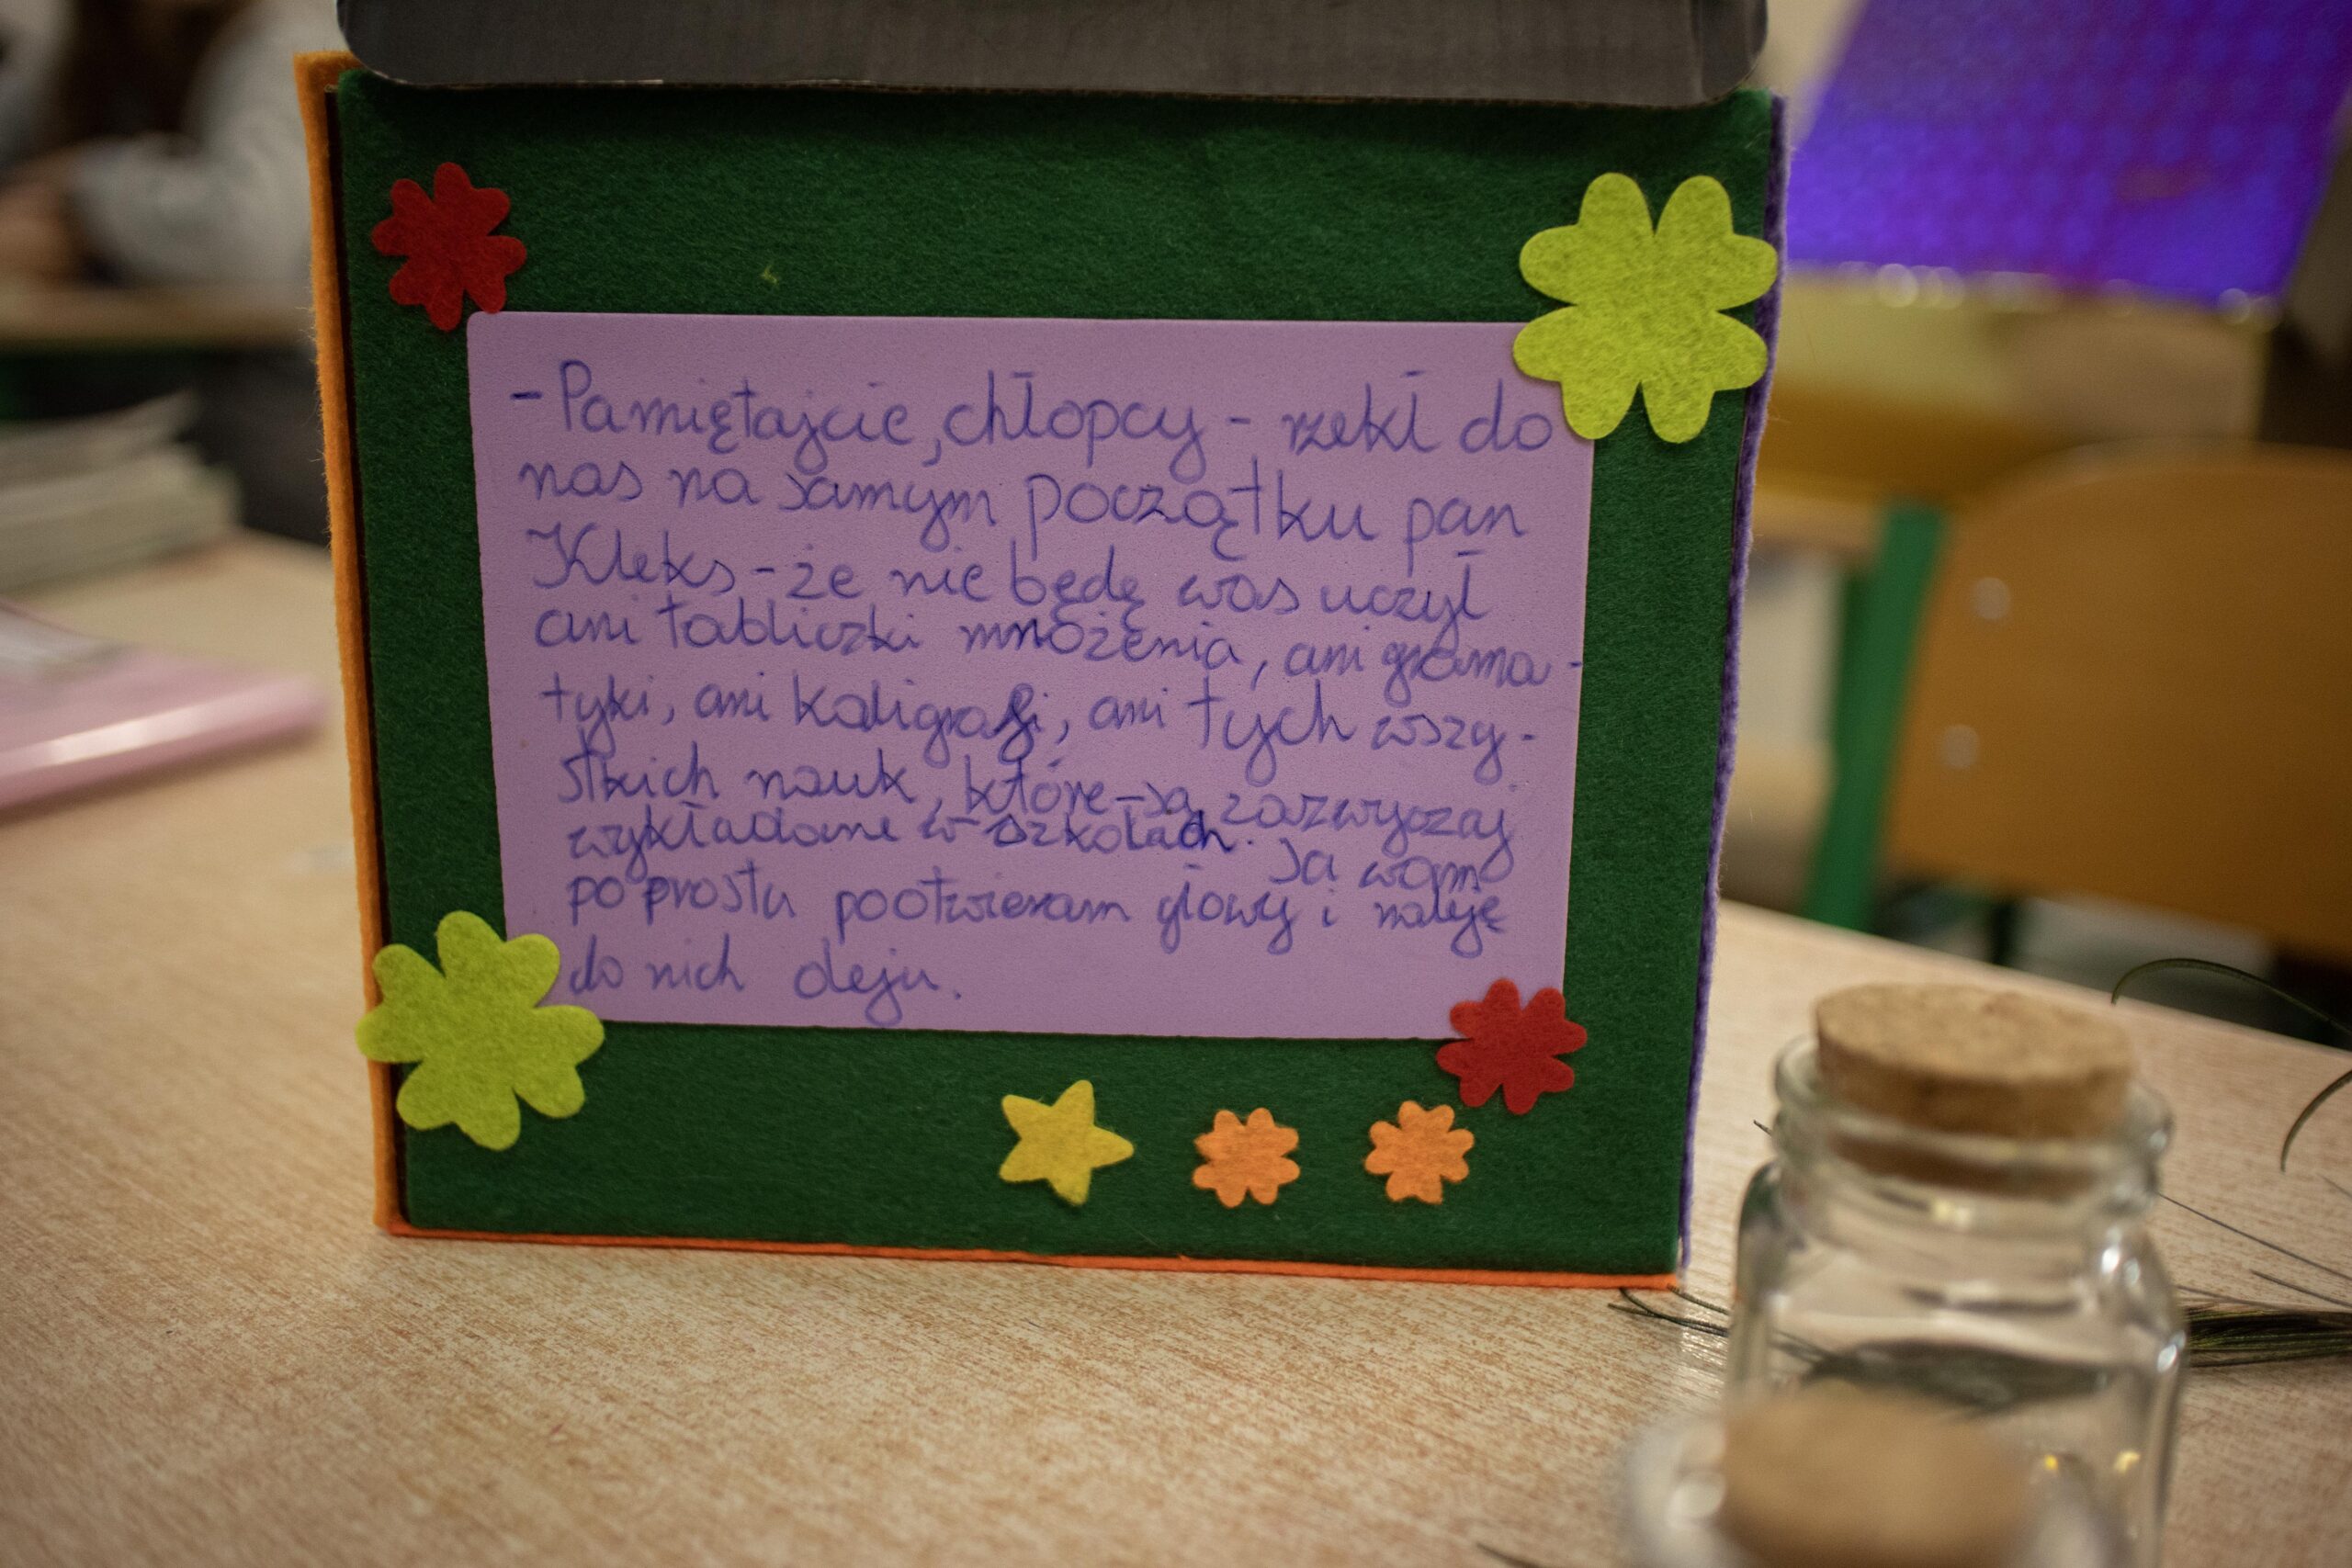 - Pamiętajcie, chłopcy - rzekł do
nas na samym początku pan
Kleks - że nie będę was uczył
ani tabliczki mnożenia, ani grama-
tyki, ani kaligrafi, ani tych wszy-
stkich nauk, które są zazwyczaj
wykładane w szkolach. Ja wam
po prostu pootwieram głowy i naleję
do nich oleju.